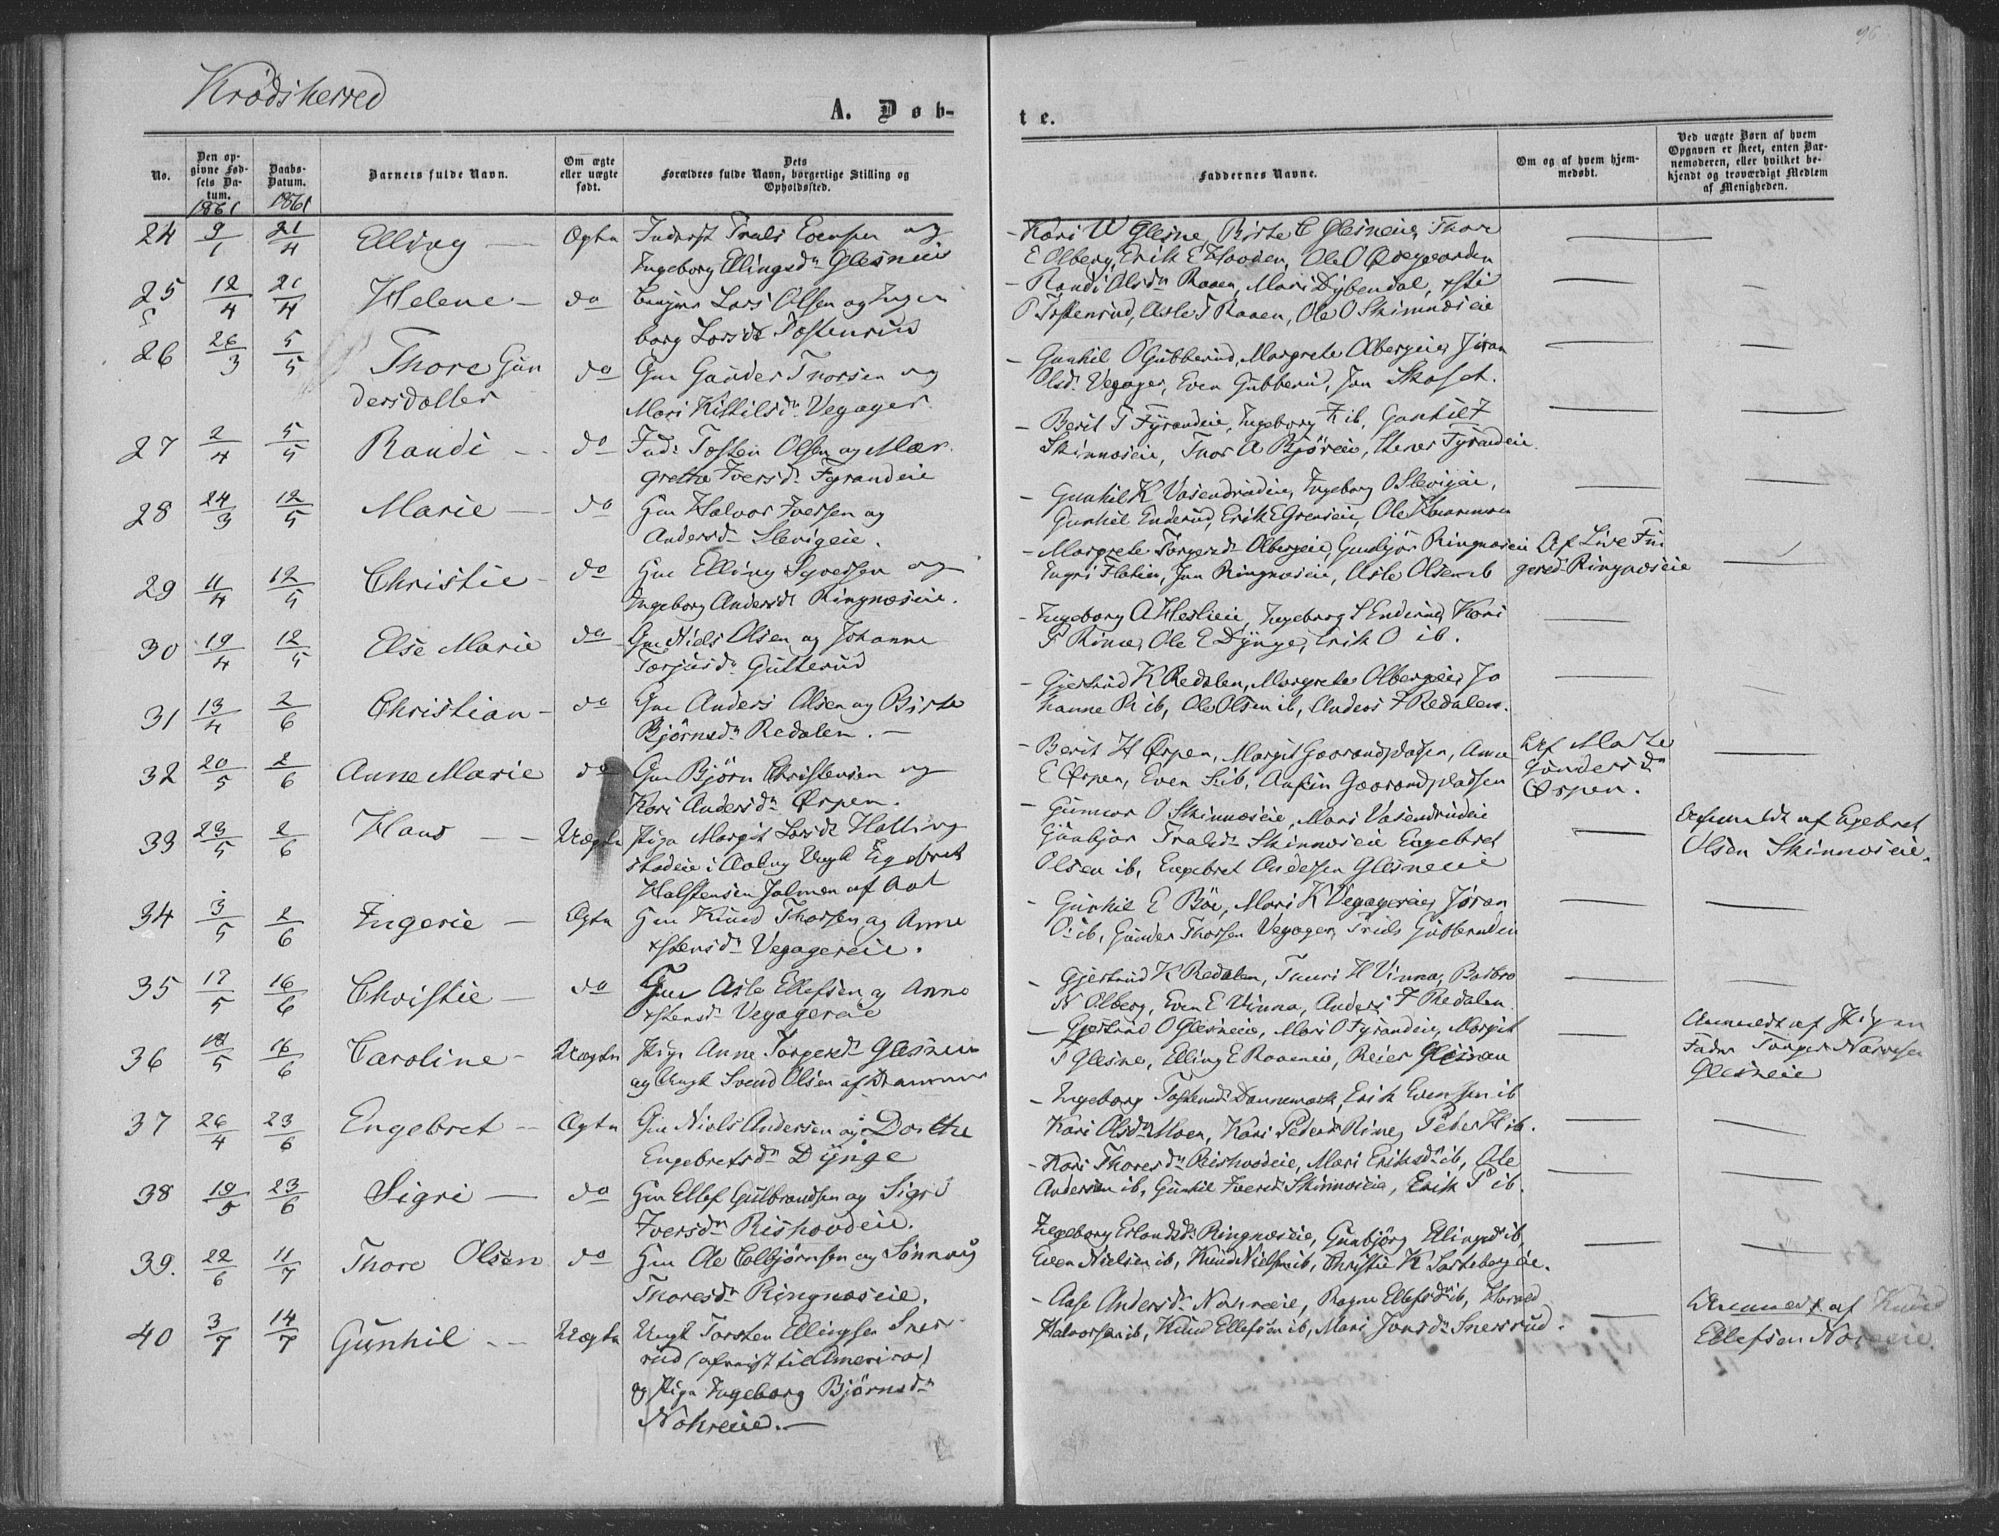 96
Krødsherred
A. Døb-
te.
No.
Den opgivne Fødsels Datum.
1861
Daabs-Datum.
1861
Barnets fulde Navn.
Om ægte eller uægte født.
Dets Forældres fulde Navn, borgerlige Stilling og Opholdssted.
Faddernes Navne.
Om og af hvem hjemmedøbt.
Ved uægte Børn af hvem Opgaven er skeet, enten Barnemoderen, eller hvilket bekjendt og troværdigt Medlem af Menigheden.
24 9/1 21/4 Elling — Ægte Inderst Truls Evensen og
Ingeborg Ellingsdr Glesneie
Kari W Glesne, Birte E Glesneie, Thore
E Olberg, Erik E Hovden, Ole O
25 12/4 21/4 Helene — do Lars Olsen og Inge
borg Larsdr Tostenrud
Randi Olsdr Raaen, Mari Dybendal,
P Tostenrud, Asle T Raaen, Ole O Skinnæseie
26 26/3 5/5 Thore Gun
dersdatter do Gm Gunder Thorsen og
Mari Kittilsdr Vegager
Gunhil O Gubberud, Margrete Olbergeie, Jøran
Olsdr Vegager, Even Gubberud, Jan
27 2/4 5/5 Randi — do Ind. Tosten Olsen og Mar
grethe Iversdr Fyrandeie
Berit T Fyrandeie, Ingeborg F ib, Gunhil F
Skinnæseie, Thor A Bjøreie, Stener Fyrandeie
28 24/3 12/5 Marie — do Gm Halvor Iversen og
Andersdr Slevigeie.
Gunhil K Vasendrudeie, Ingeborg O Slevigeie,
Gunhil Enderud, Erik E Greneie, Ole
29 11/4 12/5 Christie — do Gm Elling Syversen og
Ingeborg Andersdr Ringnæseie.
Margrete Torgersdr Olbergeie, Gunbjør Ringnæseie
Ingri Flatin, Jan Ringnæseie, Asle Olsen ib
Af Live Fin
gersdr Ringnæseie
30 19/4 12/5 Else Marie do Gm Niels Olsen og Johanne
Torjusdr Gulterud
Ingeborg A Heslieie, Ingeborg S Enderud, Kari
P Rime, Ole E Dynge, Erik O ib.
31 13/4 2/6 Christian — do Gm Anders Olsen og Birte
Bjørnsdr Redalen. —
Gjertrud K Redalen, Margrete Olbergeie, Jo
hanne R ib, Ole Olsen ib, Anders F Redalen.
32 20/5 2/6 Anne Marie do Gm Bjørn Christensen og
Kari Andersdr Ørpen.
Berit H Ørpen, Margit Gaarandpladsen, Anne
E Ørpen, Even S ib, Anfin Gaarandpladsen
Af Marte
Gundersdr
Ørpen.
33 23/5 2/6 Hans — Uægte Pige Margit Larsdr Halling
stadeie i Aal og Ungk Engebret
Halstensen Jalmen af Aal
Gunvor O Skinnæseie, Mari Vasendrudeie
Gunbjør Trulsdr Skinnæseie Engebret
Olsen ib, Engebret Andersen Glesneie
Anmeldt af Engebret
Olsen Skinnæseie.
34 3/5 2/6 Ingerie — Ægte Gm Knud Thorsen og Anne
Xstensdr Vegagereie.
Gunhil E Bøe, Mari K Vegagereie, Jøran
O ib, Gunder Thorsen Vegager, Truls Gubberudeie
35 17/5 16/6 Christie — do Gm Asle Ellefsen og Anne
Xstensdr Vegagereie
Gjertrud K Redalen, Turi H Vinna, Barbro
N Olberg, Even E Vinna, Anders F Redalen.
36 18/5 16/6 Caroline — Uægte Pige Anne Torgersdr Glesneie
og Ungk Svend Olsen af Drammen
Gjertrud O Glesneie, Mari O Fyrandeie, Margit
P Glesne, Elling E Raaeneie, Reier Glesnan
Anmeldt af Pigens
Fader Torger Narvesen
Glesneie
37 26/4 23/6 Engebret — Ægte Gm Niels Andersen og Dorthe
Engebretsdr Dynge
Ingeborg Tostensdr Dannemark, Erik Evensen ib
Kari Olsdr Moen, Kari Pedersdr Rime, Peder H ib.
38 19/5 23/6 Sigri — do Gm Ellef Gulbrandsen og Sigri
Iversdr Rishovdeie.
Kari Thoresdr Rishovdeie, Mari Eriksdr ib, Ole
Andersen ib, Gunhil Iversdr Skinnæseie, Erik P ib.
39. 22/6 11/7 Thore Olsen do Gm Ole Colbjørnsen og Sønnøg
Thoresdr Ringnæseie.
Ingeborg Erlandsdr Ringnæseie, Gunbjørg Ellingsdr ib,
Even Nielsen ib, Knud Nielsen ib, Christie K
40 3/7 14/7 Gunhil — Uægte Ungk Torsten Ellingsen Sner
rud (afreist til America)
og Pige Ingeborg Bjørnsdr
Nohreeie. —
Aase Andersdr Nohreeie, Ragne Ellefsdr ib, Harald
Halvorsen ib, Knud Ellefsen ib, Mari Jonsdr Snerrud.
Anmeldt af Knud
Ellefsen Noreeie.